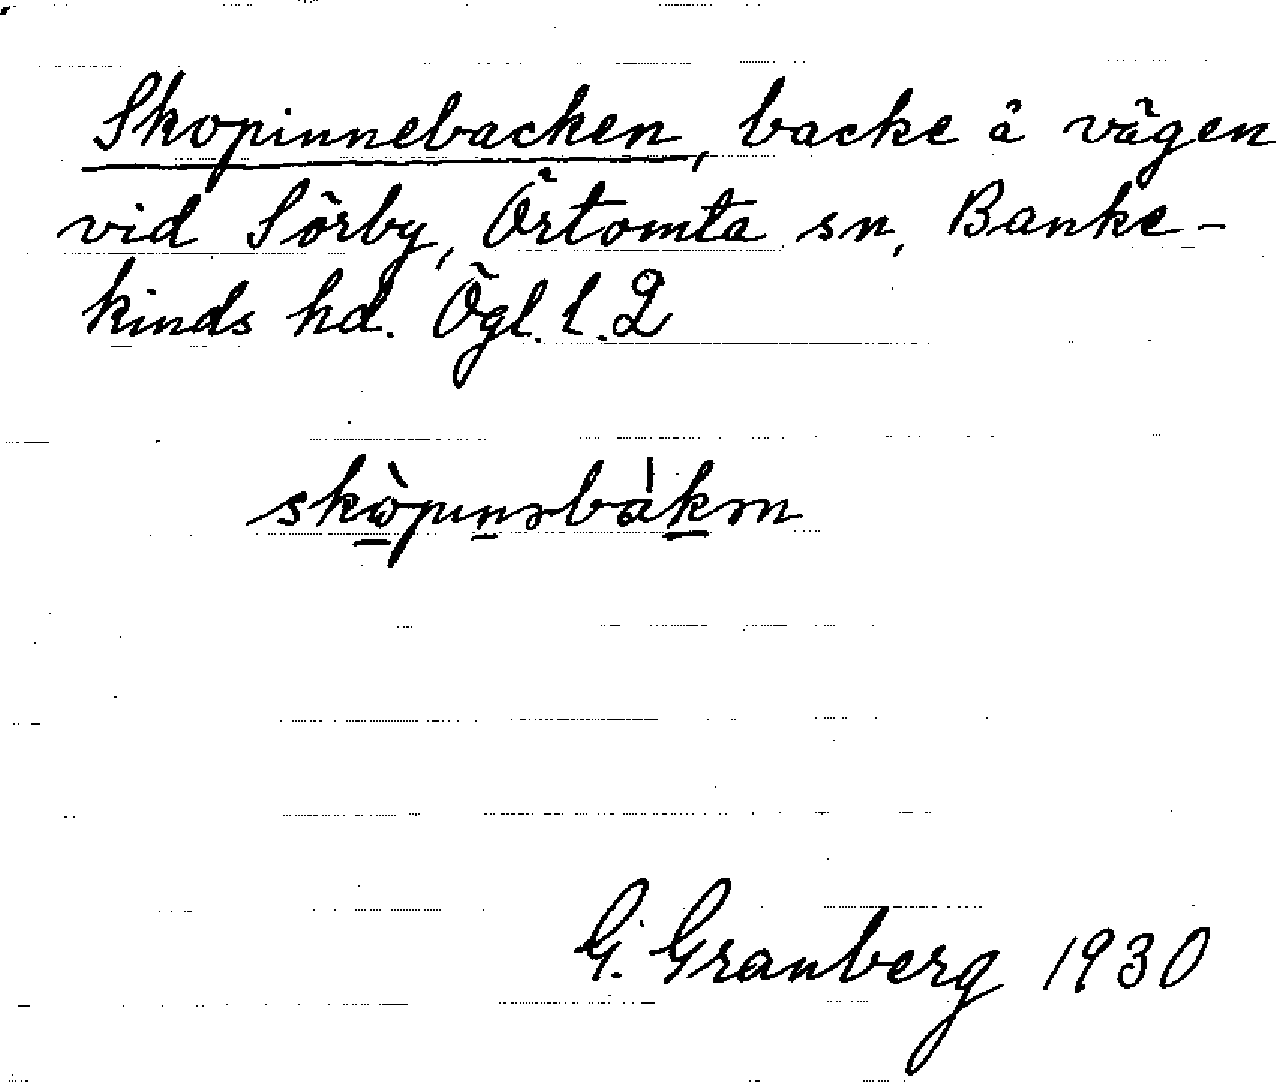 Skopinnebacken, backe å vägen
vid Sörby, Örtomta sn, Banke-
kinds hd. Ögl. l. 2
skòpınəbákən
G. Granberg 1930